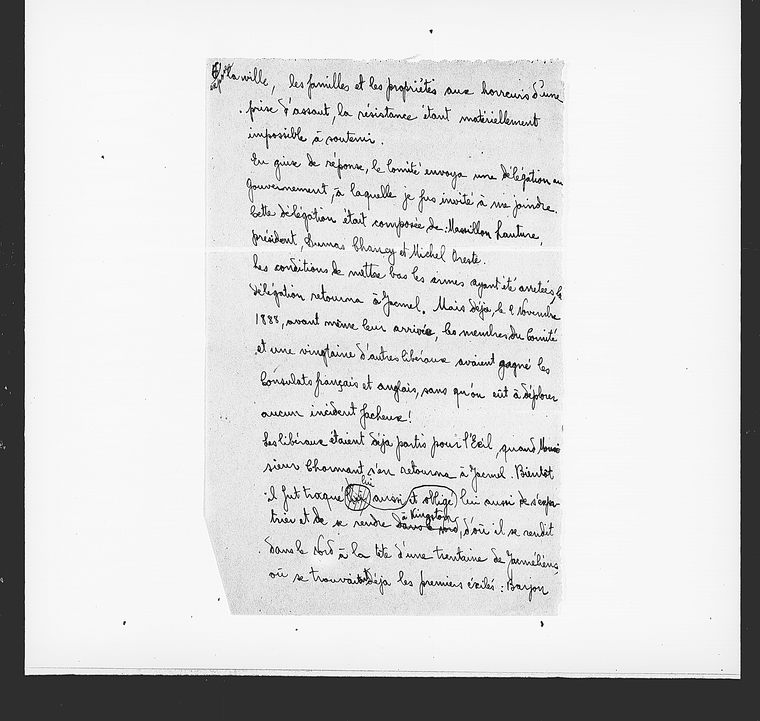 la ville, les familles et les propriétés aux horreurs d'une
prise d'assaut, la résistance étant matériellement
impossible à soutenir.
En guise de réponse, le Comité envoya une délégation au
Gouvernement, à laquelle je fus invité à me joindre.
Cette délégation était composée de: Massillon Lauture,
président, Dumas Chancy et Michel Oreste.
Les conditions de mettre bas les armes ayant été arretées, la
délégation retourna à Jacmel. Mais déja, le 2 Novembre
1888, avant même leur arrivée, les membres du Comité
et une vingtaine d'autres libéraux avaient gagné les
Consulats français et anglais, sans qu'on eût à déplorer
aucun incident facheux!
Les libéraux étaient déja partis pour l'Exil, quand Mon
sieur Chormant s'en retourna à Jacmel. Bientôt
lui
il fut traqué lui aussi et obligé lui aussi de s'expa-
à Kingston
trier et de se rendre dans le Nord, d'où il se rendit
dans le Nord à la tête d'une trentaine de Jacméliens,
où se trouvait déja les premiers éxilés: Barjon